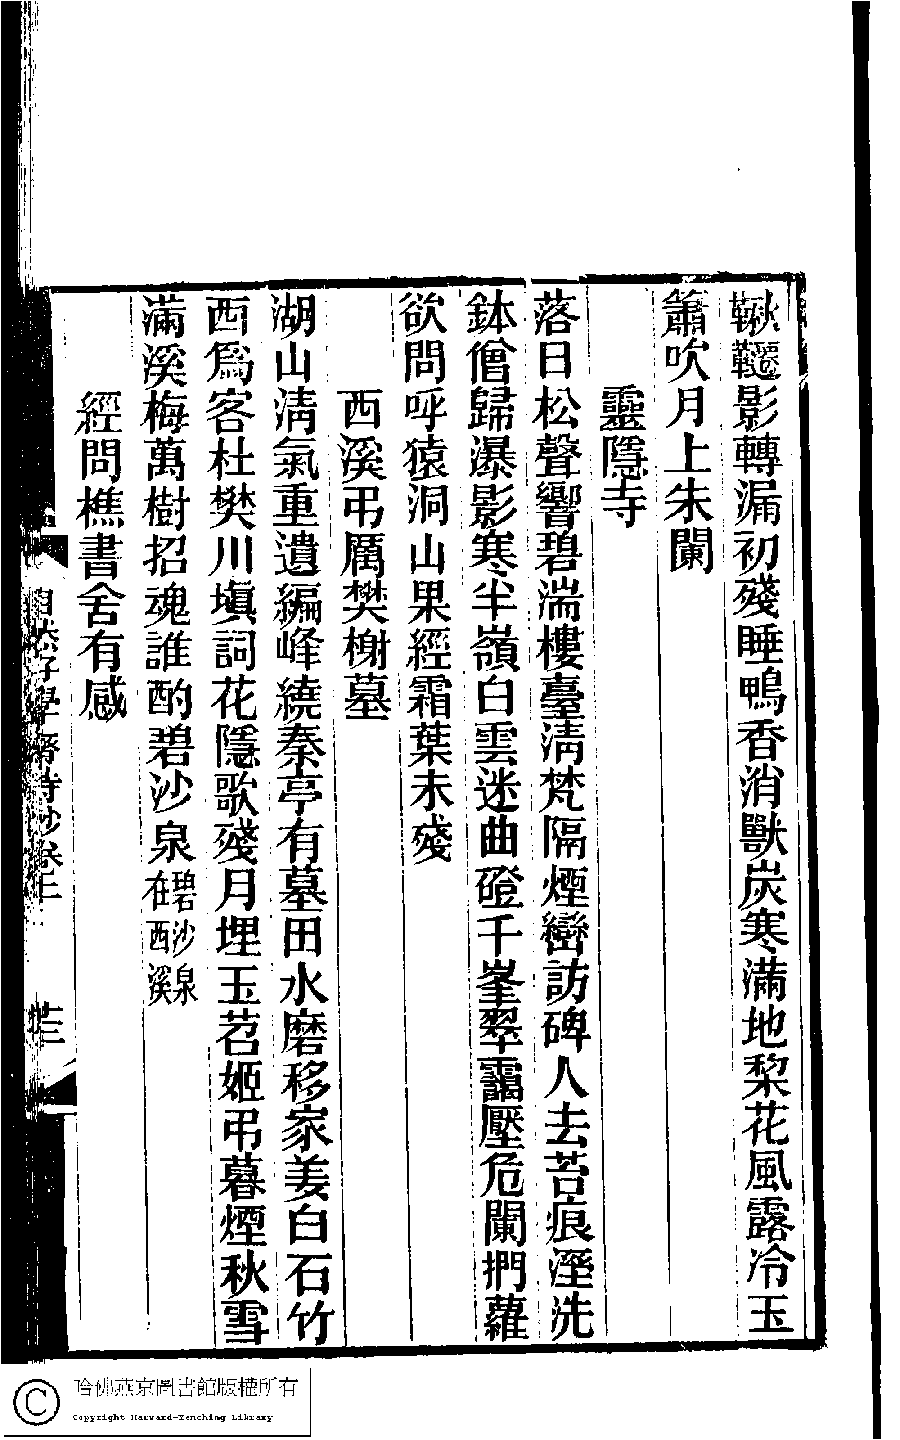 鞦韆影轉漏初殘睡鴨香消獸炭寒滿地棃花風露冷玉
簫吹月上朱闌
靈隱寺
落日松聲響碧湍樓臺淸梵隔煙巒訪碑人去苔痕溼洗
鉢僧歸瀑影寒半嶺白雲迷曲磴千峯翠靄壓危闌捫蘿
欲問呼猿洞山果經霜葉未殘
西溪弔厲樊榭墓
湖山淸氣重遺編峰繞秦亭有墓田水磨移家姜白石竹
西爲客杜樊川塡詞花隱歌殘月埋玉苕姬弔暮煙秋雪
滿溪梅萬樹招魂誰酌碧沙泉碧沙泉在西溪
經問樵書舍有感
自然好學齋詩鈔卷上
哈佛燕京圖書館版權所有
Copyright Harvard-Yenching Library